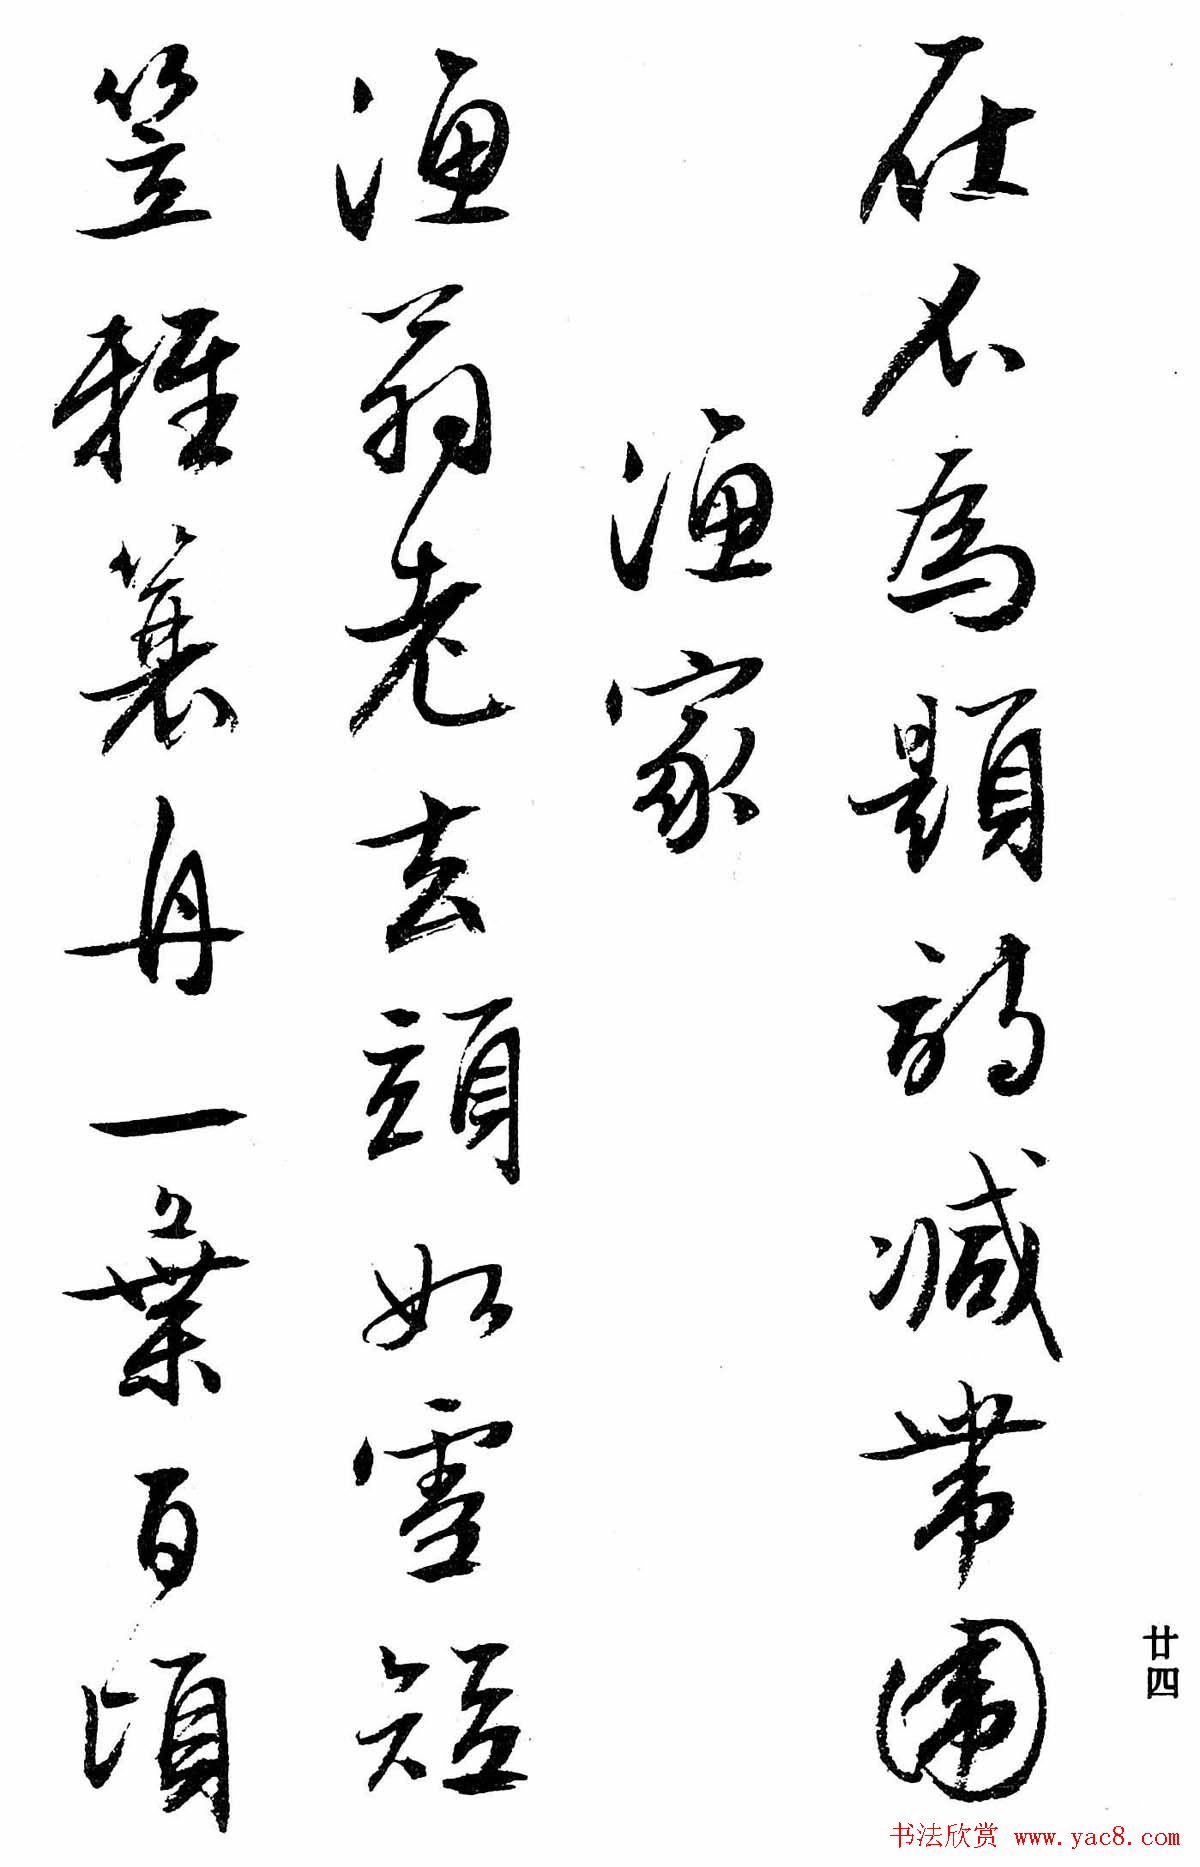 在不為題詩減帶圍
漁家
漁翁老去頭如雪短
笠輕蓑舟一葉百頃
廿四
书法欣赏 www.yac8.com